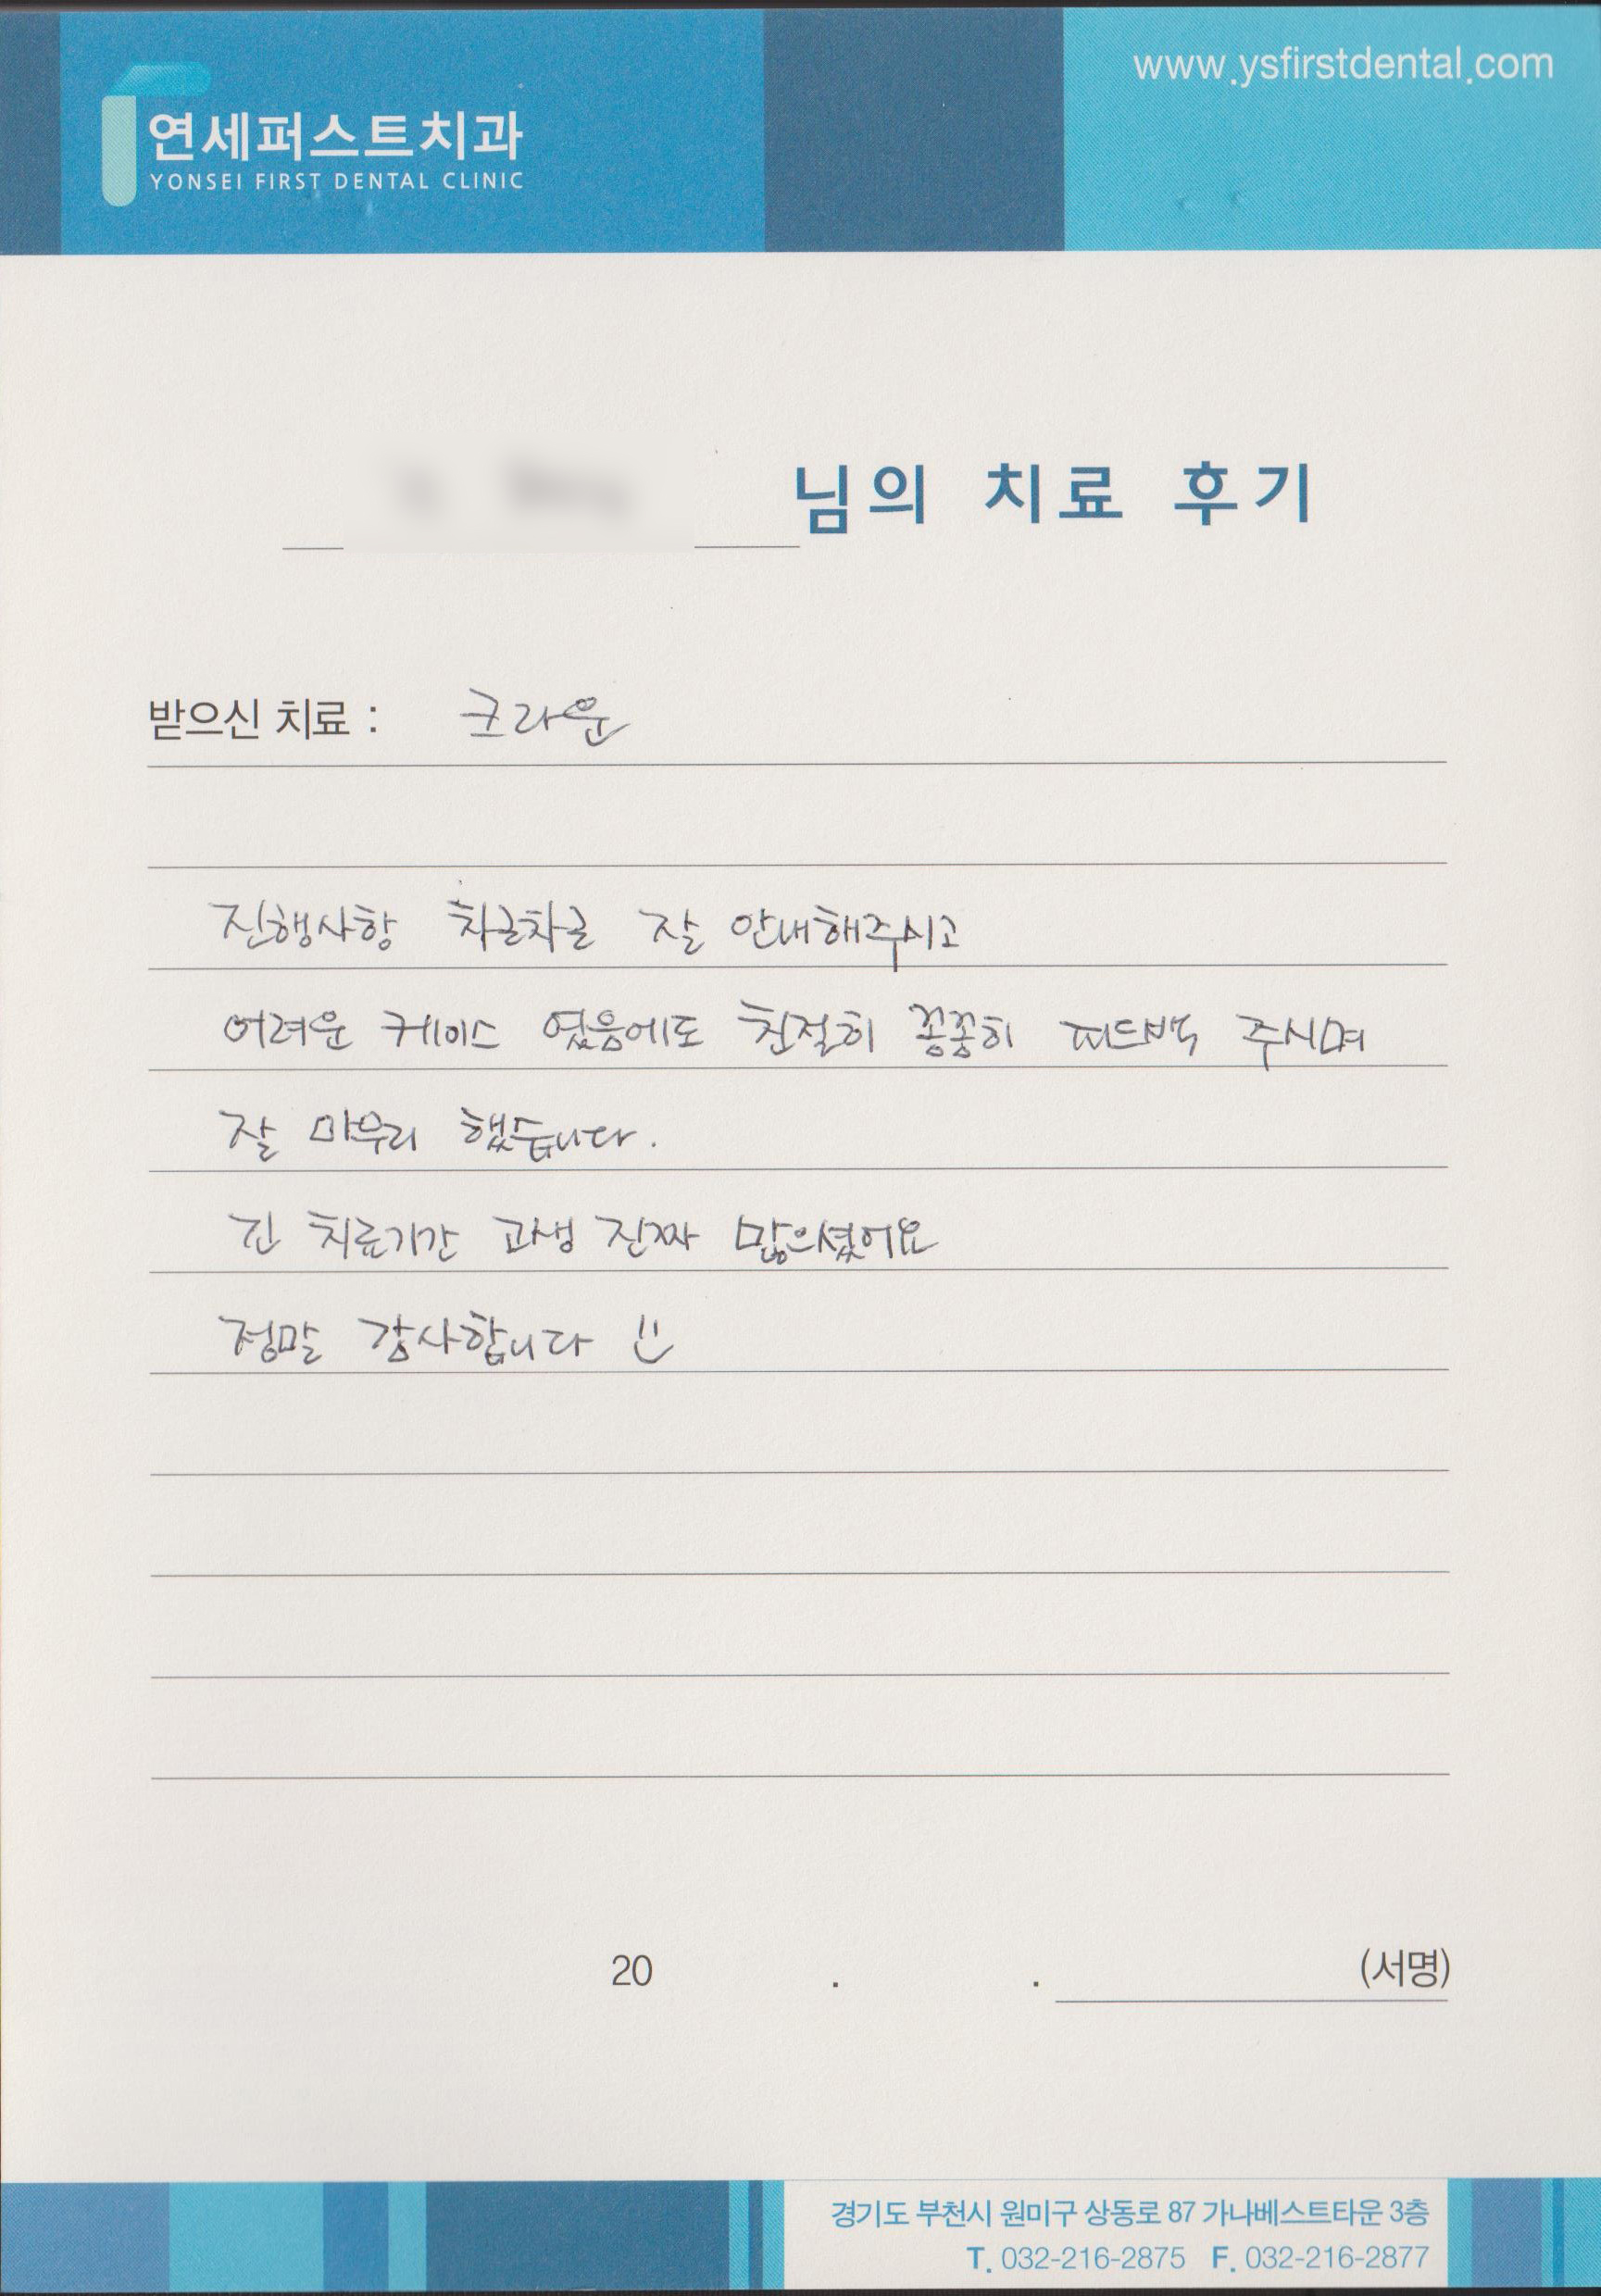 www.ysfirstdental.com
연세퍼스트치과
YONSEI FIRST DENTAL CLINIC
님의 치료 후기
받으신 치료 : 크라운
진행사항 차근차근 잘 안내해주시고
어려운 케이스 였음에도 친절히 꼼꼼히 피드백 주시며
잘 마무리 했습니다.
긴 치료기간 고생 진짜 많으셨어요
정말 감사합니다
20 . . (서명)
경기도 부천시 원미구 상동로 87 가나베스트타운 3층
T. 032-216-2875 F. 032-216-2877